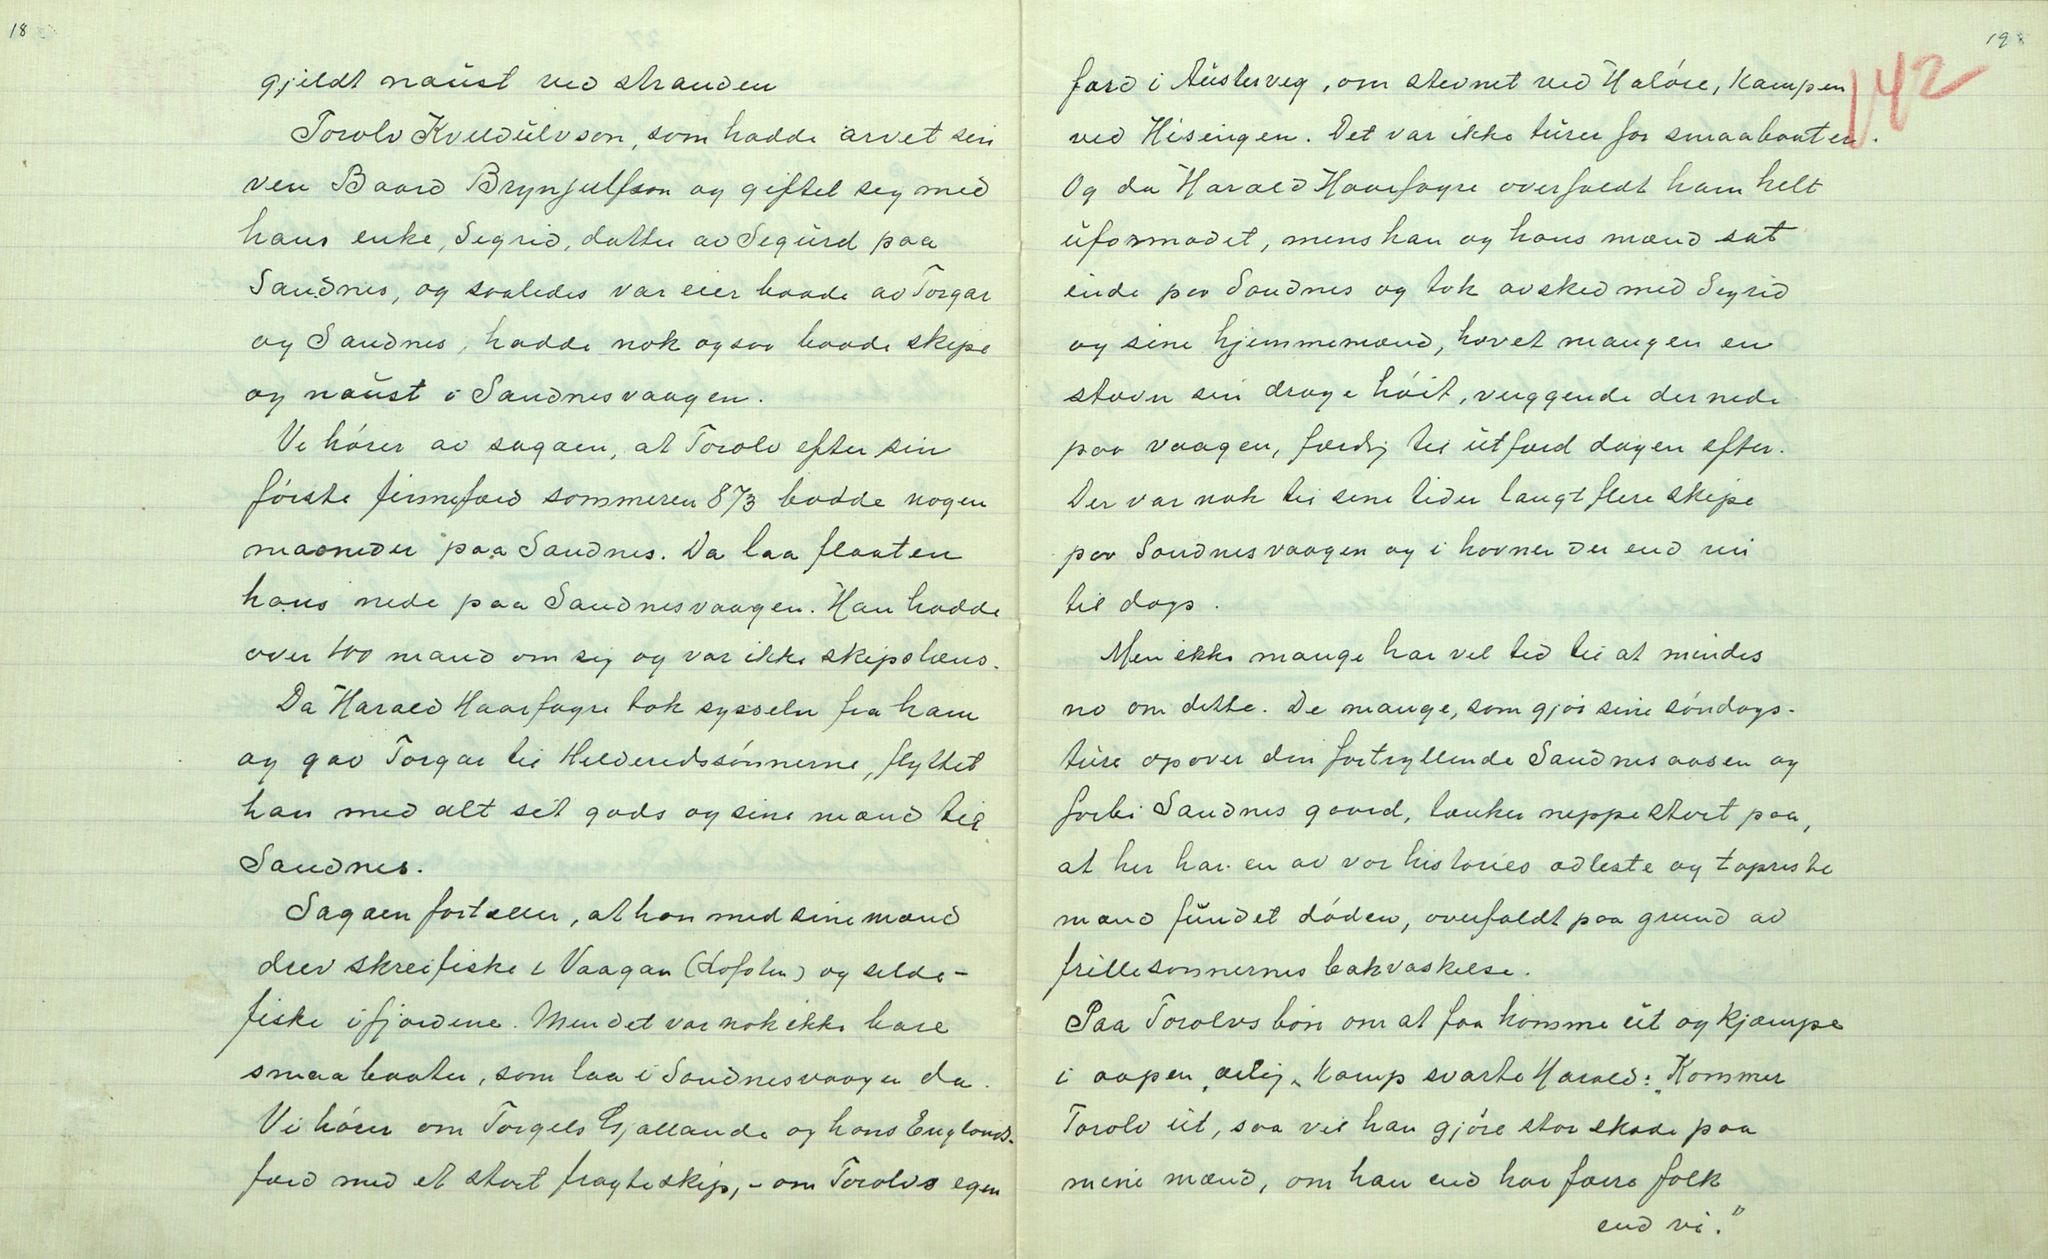 18
gjildt naust ved stranden
Torolv Kveldulvson, som hadde arvet sin
ven Baard Brynjulfson og giftet seg med
hans enke, Sigrid, datter av Sigurd paa
Sandnes, og saaledes var eier baade av Torgar
og Sandnes, hadde nok ogsaa baade skipe
og naust i Sandnesvaagen.
Vi hører av sagaen, at Torolv efter sin
første finnefærd sommeren 873 bodde nogen
maaneder paa Sandnes. Da laa flaaten
hans nede paa Sandnesvaagen. Han hadde
over 100 mand om sig og var ikke skipslæns.
Da Harald Haarfagre tok sysseln fra ham
og gav Torgar til Hilderidssønnerne, flyttet
han med alt sit gods og sine mænd til
Sandnes.
Sagaen fortæller, at han med sine mænd
drev skreifiske i Vaagan (Lofoten) og silde-
fiske i fjordene. Men det var nok ikke bare
smaabaater, som laa i Sandnesvaagen da.
Vi hører om Torgels Gjallande og hans Englands-
færd med et stort fragteskip, - om Torolvs egen
19
142
færd i Austerveg, om stevnet ved Haløre, kampen
ved Hisingen. Det var ikke turer for smaabaater.
Og da Harald Haarfagre overfaldt ham helt
uformodet, mens han og hans mænd sat
inde paa Sandnes og tok avsked med Sigrid
og sine hjemmemænd, hævet mangen en
stavn sin drage høit, vuggende dernede
paa vaagen, færdig til utfærd dagen efter.
Der var nok til sine tider langt flere skipe
paa Sandnesvaagen og i havner der end nu
til dags.
Men ikke mange har vel tid til at mindes
no om dette. De mange, som gjør sine søndags-
ture opover den fortryllende Sandnesaasen og
forbi Sandnes gaard, tænker neppe stort paa,
at her har en av vor histories ædleste og tapreste
mænd fundet døden, overfaldt paa grund av
frillesønnernes bakvaskelse.
Paa Torolvs bøn om at faa komme ut og kjæmpe
i aapen, ærlig kamp svarte Harald: "Kommer
Torolv ut, saa vil han gjøre stor skade paa
mine mænd, om han end har færre folk
end vi."